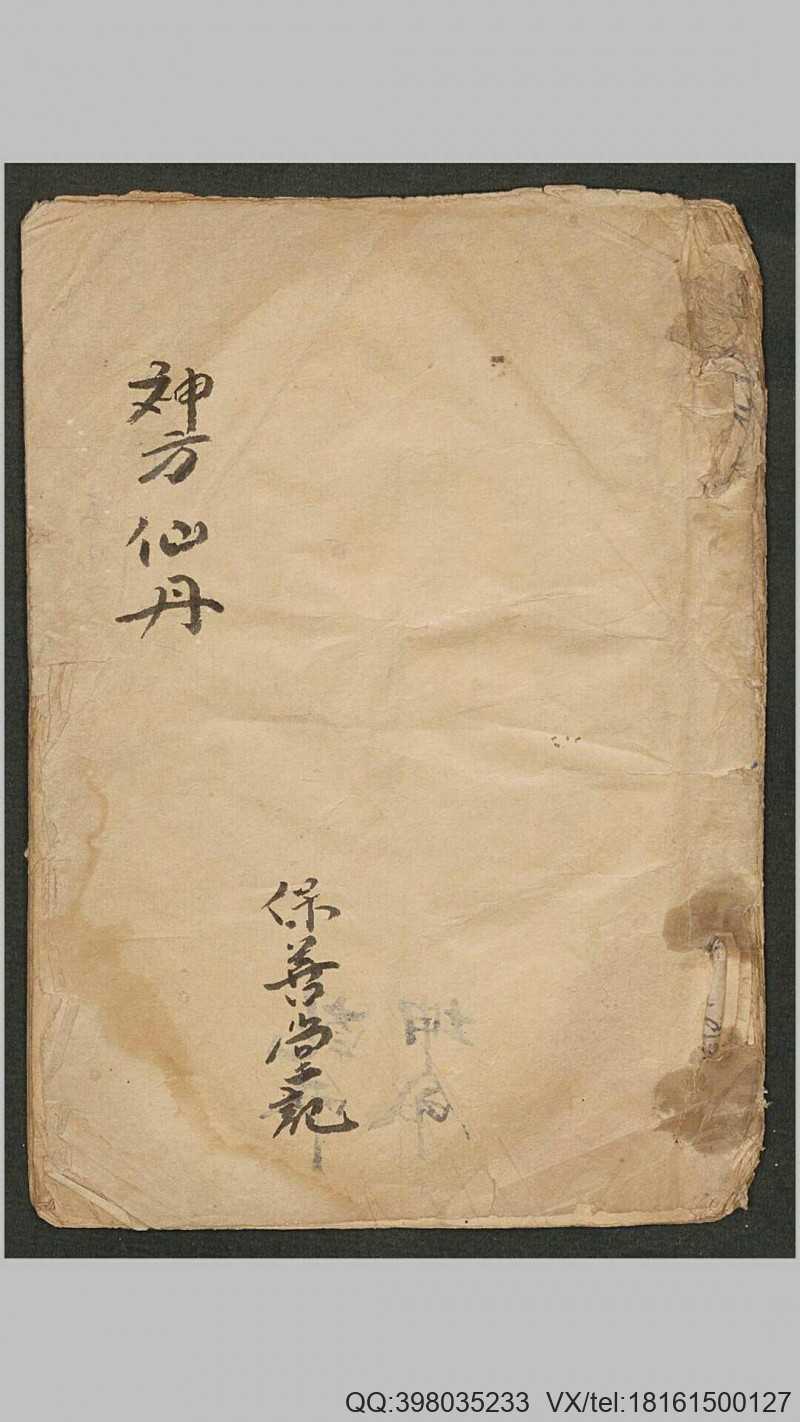 神方仙丹
保善堂記
QQ:398035233 VX/tel:18161500127